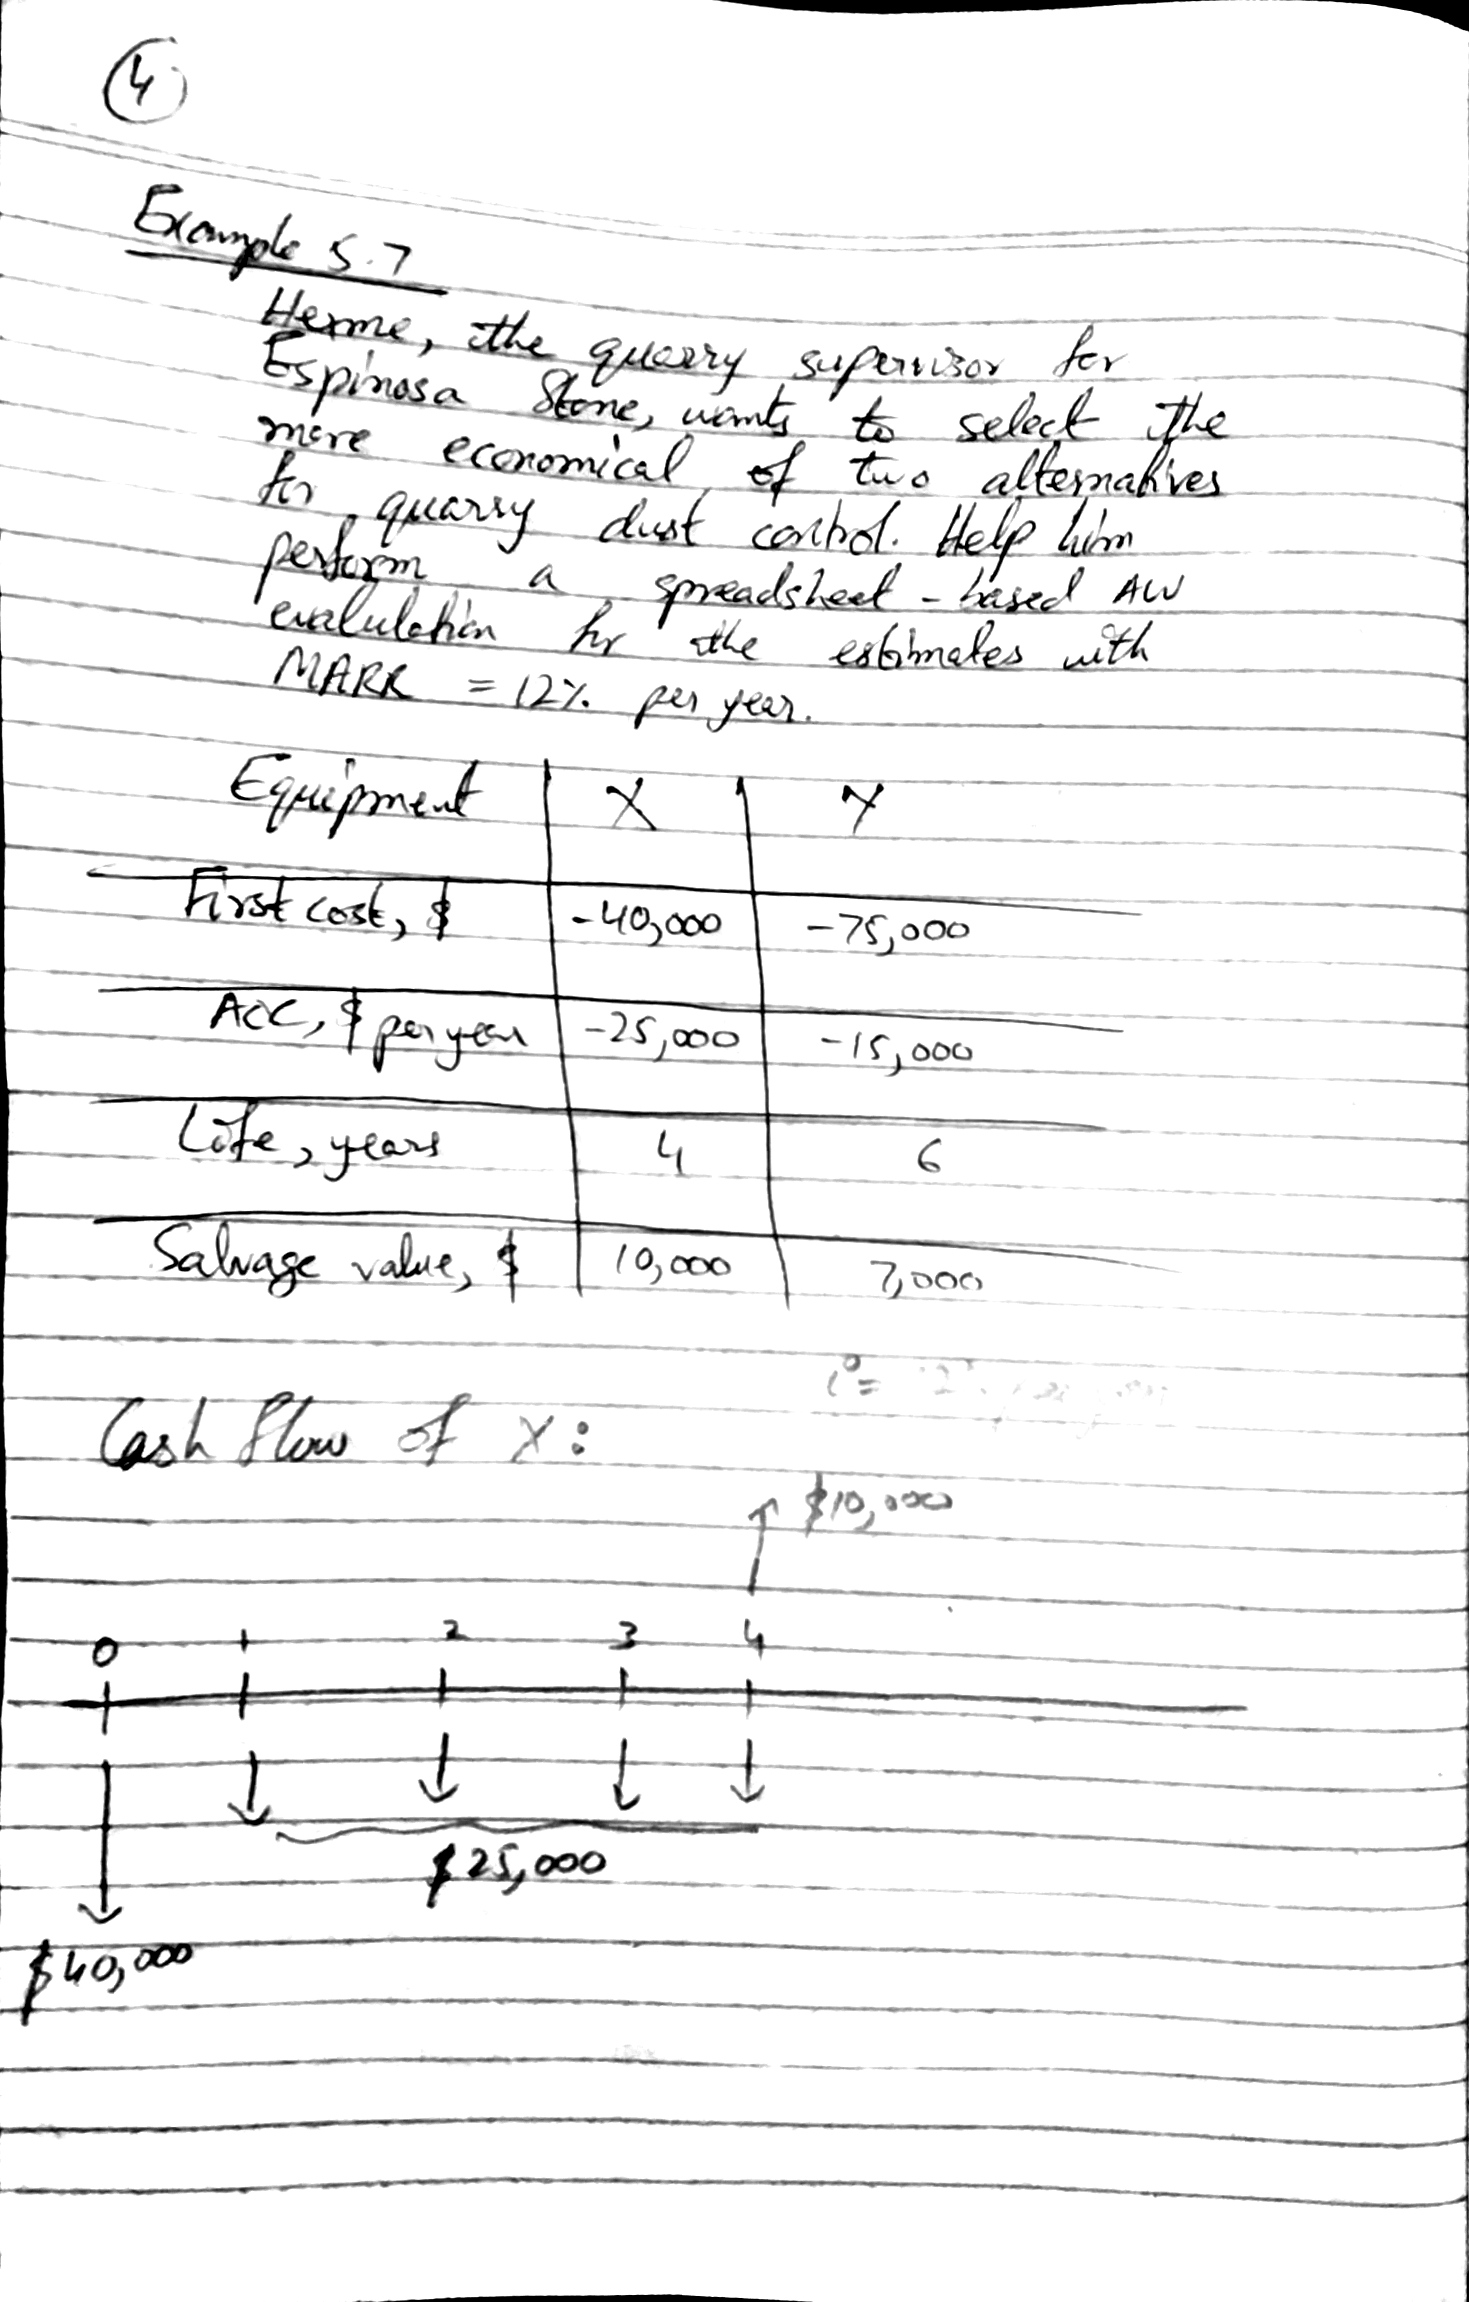 4
Example 5.7
Herme, the quarry supervisor for
Espinosa Stone, wants to select the
more economical of two alternatives
for quarry dust control. Help him
perform a spreadsheet-based AW
evalulation for the estimates with
MARR = 12% per year.
Equipment X Y
First cost, $ -40,000 -75,000
AOC, $ per year -25,000 -15,000
Life, years 4 6
Salvage value, $ 10,000 7,000
i =
Cash flow of X:
$10,000
0 1 2 3 4
$25,000
$40,000